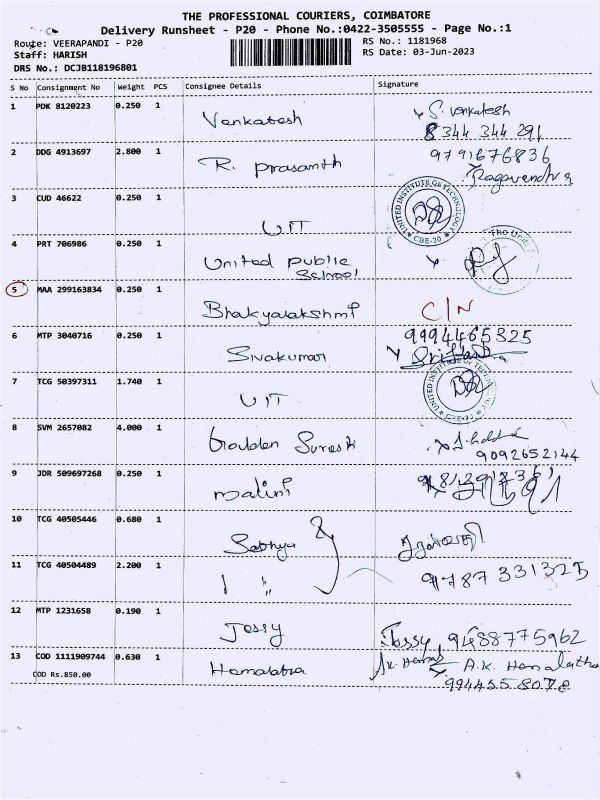 THE PROFESSIONAL COURIERS, COIMBATORE
Delivery Runsheet - P20 - Phone No.:0422-3505555 - Page No.:1
Route: VEERAPANDI - P20 RS No.: 1181968
Staff: HARISH RS Date: 03-Jun-2023
DRS No.: DCJB118196801
S No Consignment No Weight PCS Consignee Details Signature
1 PDK 8120223 0.250 1 Venkatesh S. Venkatesh
8344 344 291
2 DDG 4913697 2.800 1 R. Prasanth 9791676836
Ragavendra
3 CUD 46622 0.250 1 UIT UNITED INSTITUTE OF TECHNOLOGY CBE-20
4 PRT 706986 0.250 1 United public School
5 MAA 299163834 0.250 1 Bhakyalakshmi C/N
6 MTP 3040716 0.250 1 Sivakumar 9994465325
7 TCG 50397311 1.740 1 UIT UNITED INSTITUTE OF CBE-20
8 SVM 2657082 4.000 1 Goulden Suresh
9092652144
9 JDR 509697268 0.250 1 malini
10 TCG 40505446 0.680 1 Sathya
11 TCG 40504489 2.200 1 " 9787331325
12 MTP 1231658 0.190 1 Jessy Jessy 9488775962
13 COD 1111909744 0.630 1 Hemalatha A.K. Hemalatha
COD Rs.850.00 9944558078